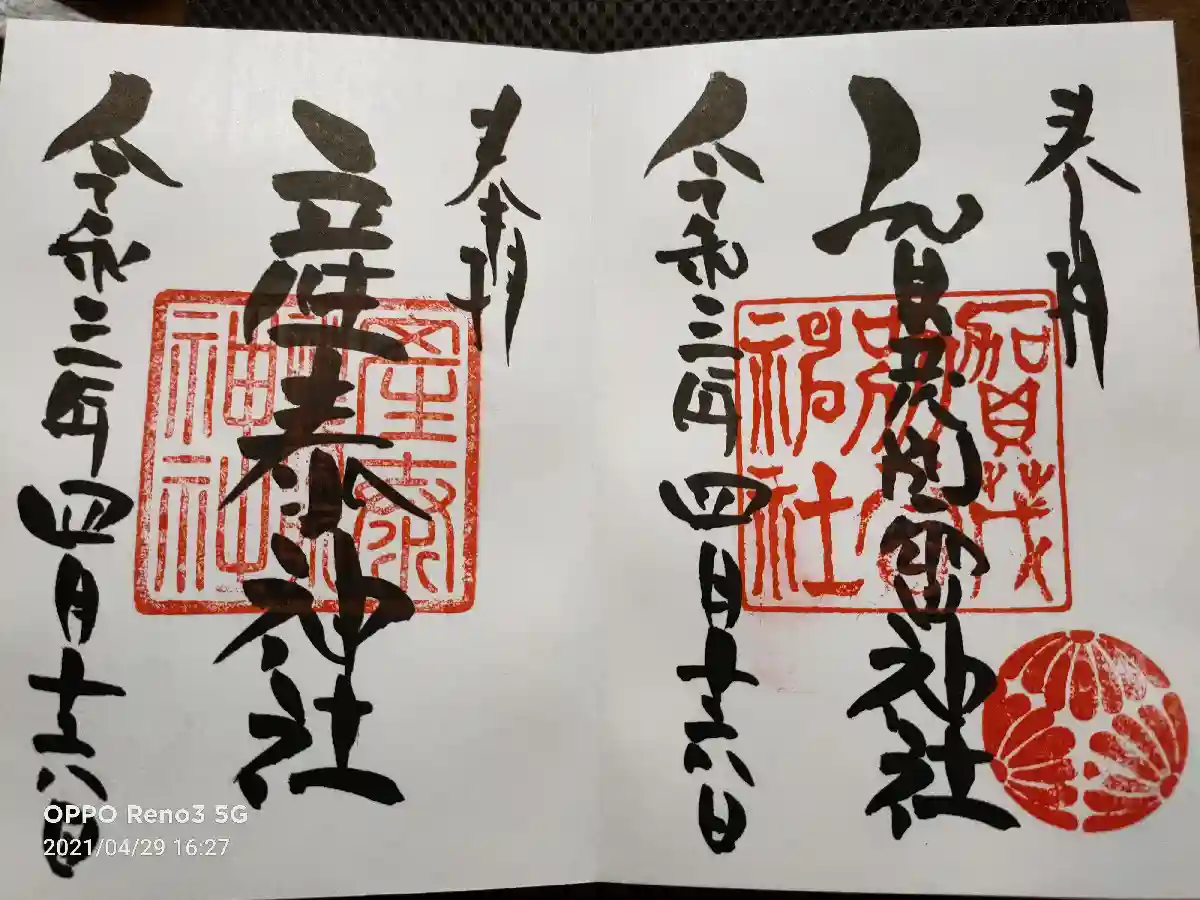 奉拝
賀茂別雷神社
令和三年四月十六日
賀茂
神社
奉拝
産泰神社
令和三年四月十六日
産泰
神社
OPPO Reno3 5G
2021/04/29 16:27